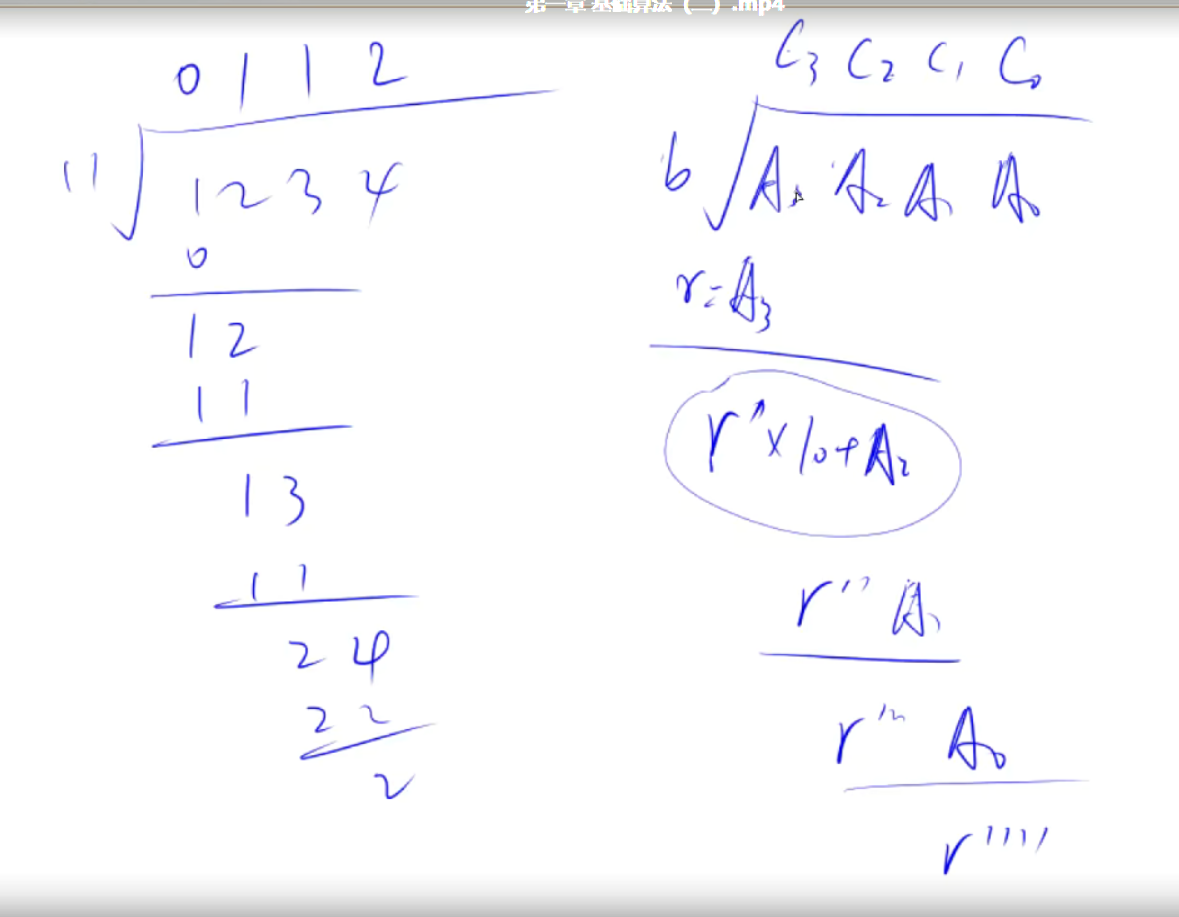 第一章 基础算法（二）.mp4
0 1 1 2
11 1 2 3 4
0
1 2
1 1
1 3
1 1
2 4
2 2
2
C₃ C₂ C₁ C₀
b A₃ A₂ A₁ A₀
r=A₃
r'×10+A₂
r'' A₁
r''' A₀
r''''